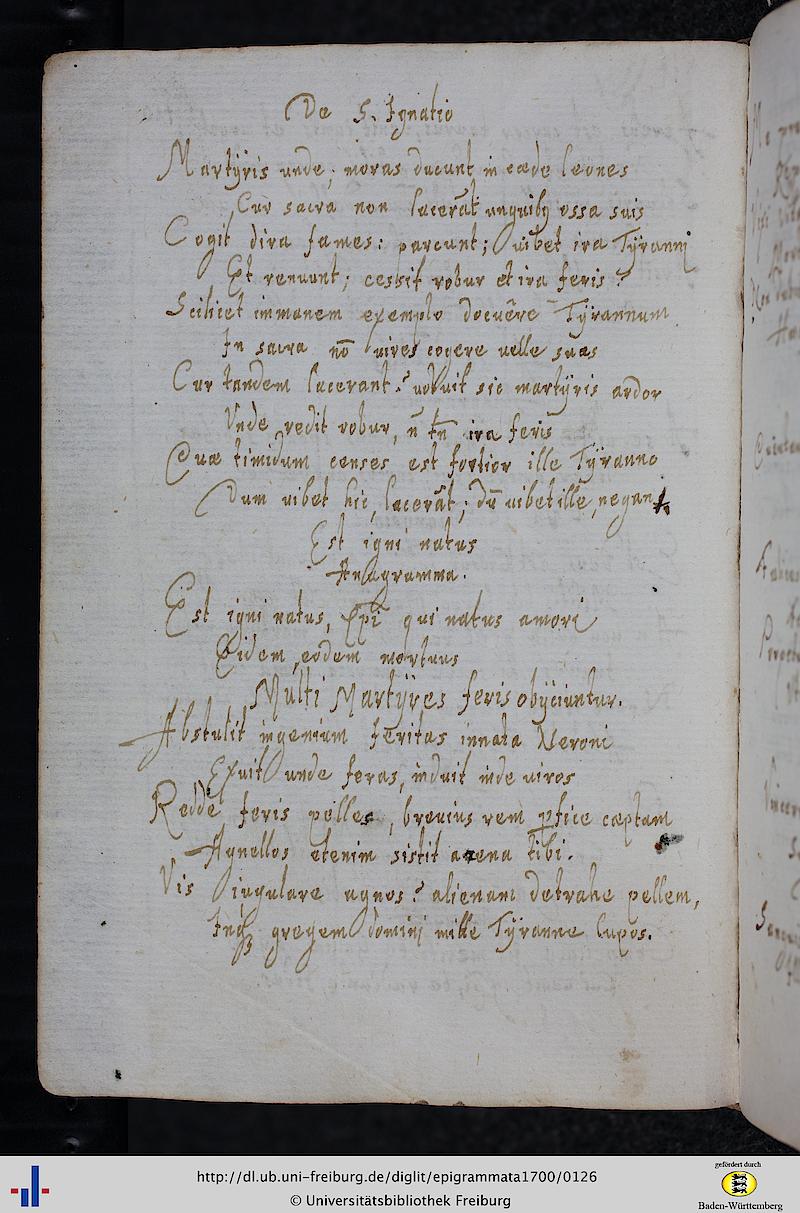 De S. Ignatio
Martÿris unde, moras ducunt in cæde leones
Cur sacra non lacerāt unguibꝫ ossa suis
Cogit dira fames: parcunt; iubet ira Tÿranni
Et renuunt; cessit robur et ira feris?
Scilicet immanem exemplo docuêre Tÿrannum
In sacra nō vires cogere velle suas
Cur tandem lacerant? voluit sic martÿris ardor
Unde redit robur, n̄ tn̄ ira feris
Quæ timidum censes est fortior ille Tÿranno
Dum iubet hic, lacerāt; dū iubet ille, negant
Est igni natus
Anagramma.
Est igni natus, Xpi qui natus amori
Eidem, eodem mortuus
Multi Martÿres feris obÿciuntur.
Abstulit ingenium feritas innata Neroni
Exuit unde feras, induit inde viros
Redde feris pelles, brevius rem ꝑfice cæptam
Agnellos etenim sistit arena tibi.
Vis iugulare agnos? alienam detrahe pellem,
Inqꝫ gregem domini mille Tÿranne lupos.
http://dl.ub.uni-freiburg.de/diglit/epigrammata1700/0126
© Universitätsbibliothek Freiburg
gefördert durch
Baden-Württemberg